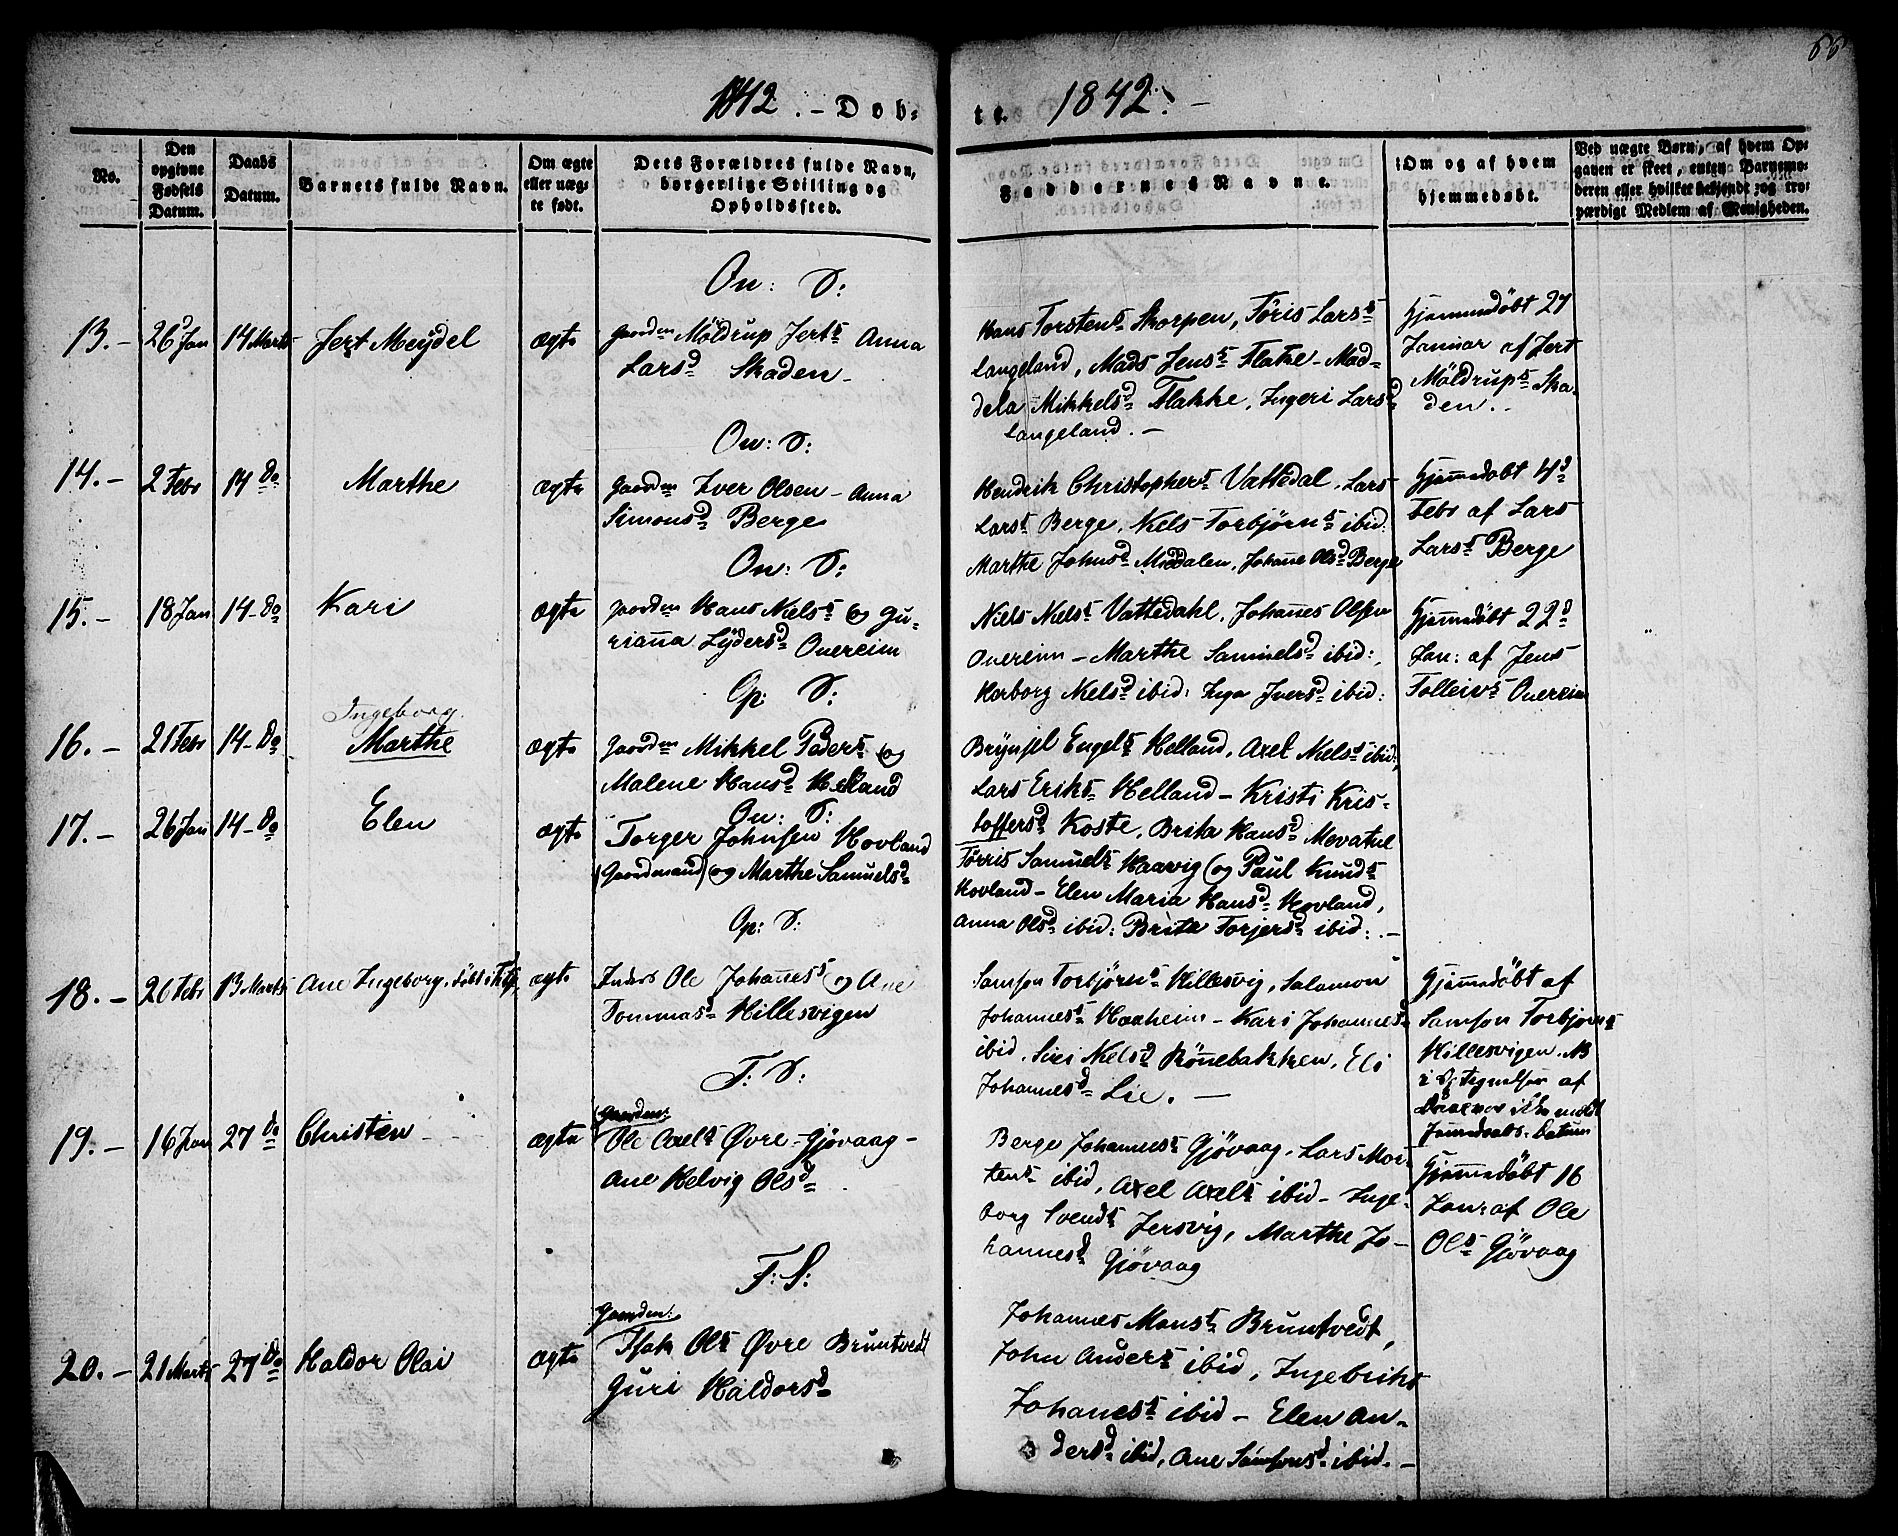 66
1842. – Døb-
te. 1842. –
No.
Den opgivne Fødsels Datum.
Daabs Datum.
Barnets fulde Navn.
Om ægte eller uægte født.
Dets Forældres fulde Navn, borgerlige Stilling og Opholdssted.
Faddernes Navne.
Om og af hvem hjemmedøbt.
Ved uægte Børn, af hvem Opgaven er skeet, enten Barnemoderen eller hvilket bekjendt og troværdigt Medlem af Menigheden.
On: S:
13. – 26 Jan 14 Marts Jert Meÿdel ægte
Gaardm Möldrup Jerts Anna
Larsd Skaden –
Hans Torstens Skorpen, Töris Lars
Langeland, Mads Jens Flakke – Mad-
dela Mikkelsd Flakke, Ingeri Larsd
Langeland. –
Hjemmedöbt 27
Januar af Jert
Möldrups Ska-
den.
On: S:
14. – 2 Febr 14 do Marthe ægte
Gaardm Iver Olsen – Anna
Simonsd Berge
Hendrik Christophers Vattedal, Lars
Lars Berge, Niels Torbjörns ibid:
Marthe Johnsd Middalen, Johanne Olsd Berge
Hjemmedöbt 4d
Febr af Lars
Lars Berge
On: S:
15. – 18 Jan 14 – do Kari ægte
Gaardm Hans Niels og Gu-
rianna Lÿdersd Onereim
Niels Niels Vattedahl, Johannes Olsen
Onereim – Marthe Samuelsd ibid:,
Herborg Nielsd ibid: Inga Iversd ibid:
Hjemmedöbt 22d
Jan: af Jens
Tolleivs Onereim
Op: S:
16. – 21 Febr 14 – do Ingeborg
Marthe ægte
Gaardm Mikkel Peders og
Malene Hansd Helland
Brÿnjel Engels Helland, Axel Niels ibid,
Lars Eriks Helland – Kristi Kris-
toffersd Koste, Brita Hansd Movatne
On: S:
17. – 26 Jan 14 – do Elen ægte
Torger Johnsen Hovland
(Gaardmand) og Marthe Samuelsd
Törris Samuels Haavig og Paul Knuds
Hovland – Elen Maria Hansd Hovland,
Anna Olsd ibid: Brita Torjersd ibid: –
Op: S:
18. – 26 Febr 13 Marts Ane Ingeborg, ægte
Inders Ole Johannes og Ane
Tommasd Hillesvigen
Samson Torbjörns Hillesvig, Salamon
Johannes Haaheim – Kari Johannesd
ibid, Siri Nielsd Rönnebakken, Eli
Johannesd Lie. –
Hjemmedöbt af
Samson Torbjörns
Hillesvigen. NB
af
Datum
F: S:
19. – 16 Jan 27 do Christen ægte
Gaardm:
Ole Axels Øvre-Gjövaag –
Ane Helvig Olsd
Berge Johannes Gjövaag, Lars Mor-
tens ibid, Axel Axels ibid – Inge-
borg Svends Jersvig, Marthe Jo-
hannesd Gjövaag
Hjemmedöbt 16
Janr af Ole
Ols Gjövaag
F: S:
20. – 21 Marts 27 do Haldor Olai ægte
Gaardm:
Isak Ols Øvre Bruntvedt
Guri Haldorsd
Johannes Mons Bruntvedt,
John Anders ibid, Ingebrikt
Johannes ibid – Elen An-
dersd ibid, Ane Samsonsd ibid. –